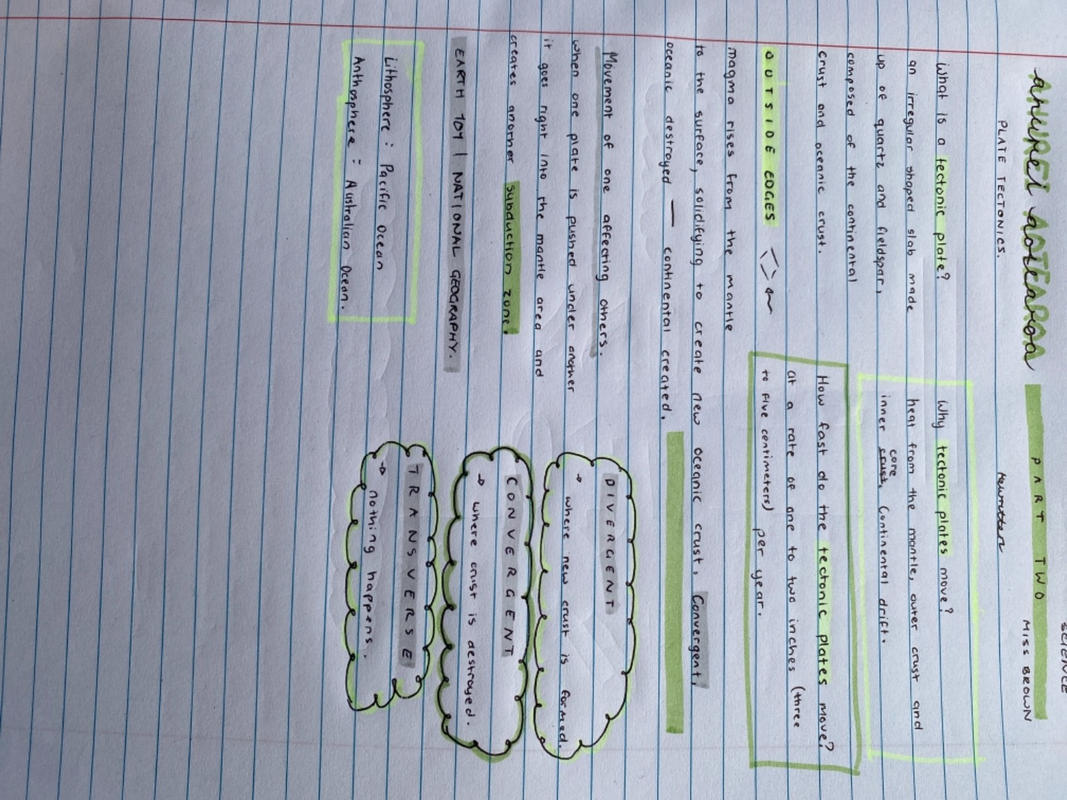 SCIENCE
ahurei aotearoa PART TWO MISS BROWN
PLATE TECTONICS. Rewritten
What is a tectonic plate?
an irregular shaped slab made
up of quartz and fieldspar,
composed of the continental
crust and oceanic crust.
Why tectonic plates move?
heat from the mantle, outer crust and
inner crust, core Continental drift.
How fast do the tectonic plates move?
at a rate of one to two inches (three
to five centimeters) per year.
OUTSIDE EDGES
magma rises from the mantle
to the surface, solidifying to create new oceanic crust, Convergent,
oceanic destroyed — continental created.
Movement of one affecting others.
when one plate is pushed under another
it goes right into the mantle area and
creates another subduction zone.
EARTH 101 | NATIONAL GEOGRAPHY.
Lithosphere : Pacific Ocean
Anthosphere : Australian Ocean.
DIVERGENT
→ where new crust is formed.
CONVERGENT
→ where crust is destroyed.
TRANSVERSE
→ nothing happens.